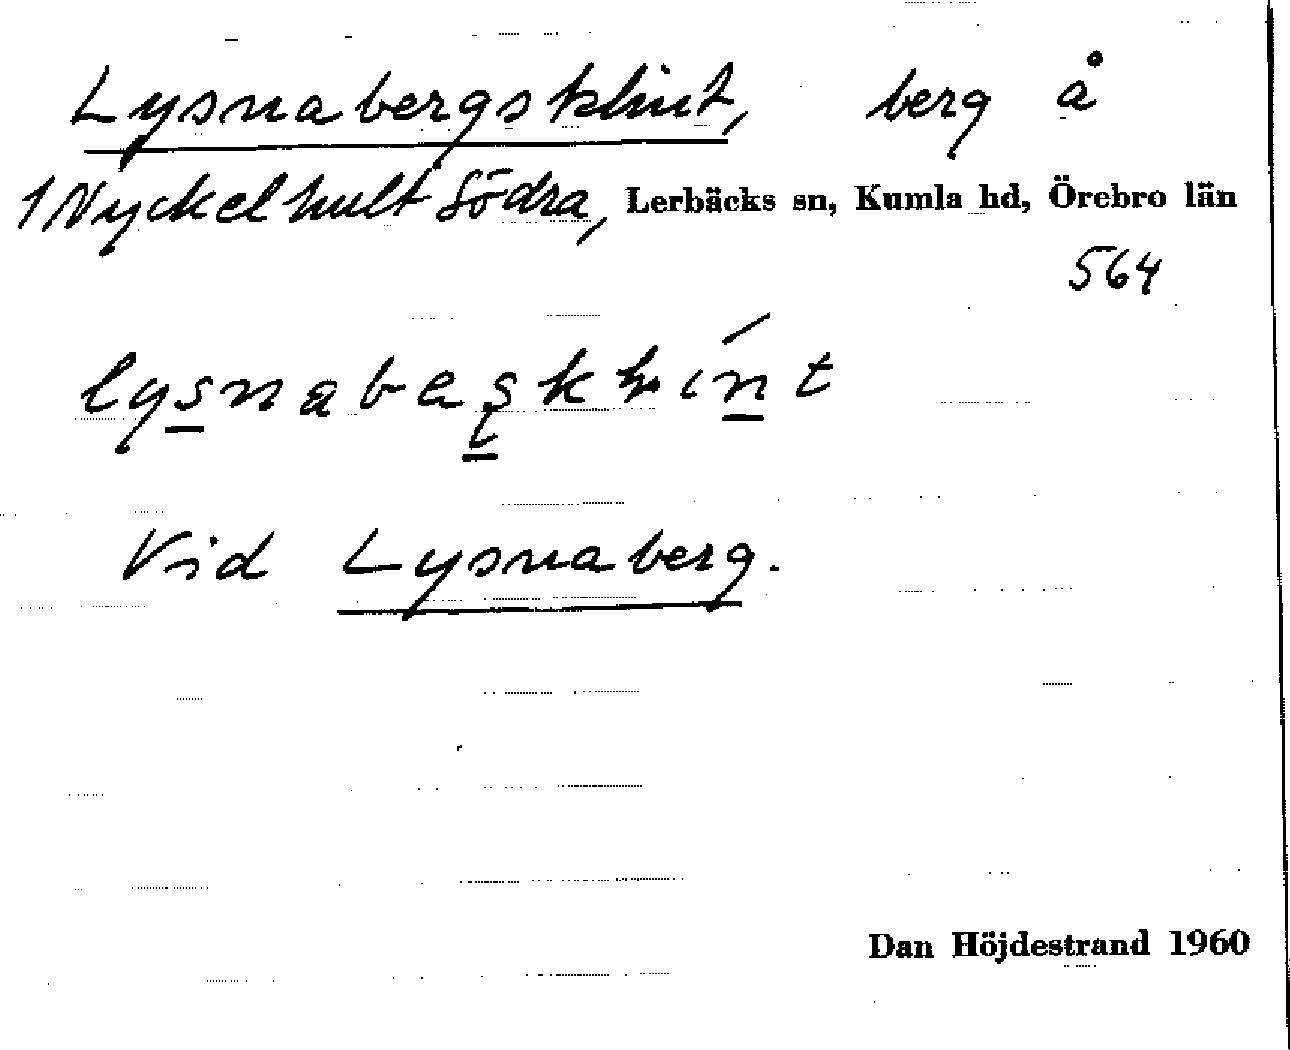 Lysnabergsklint, berg å
1 Nyckelhult Södra, Lerbäcks sn, Kumla hd, Örebro län
564
Vid Lysnaberg.
Dan Höjdestrand 1960